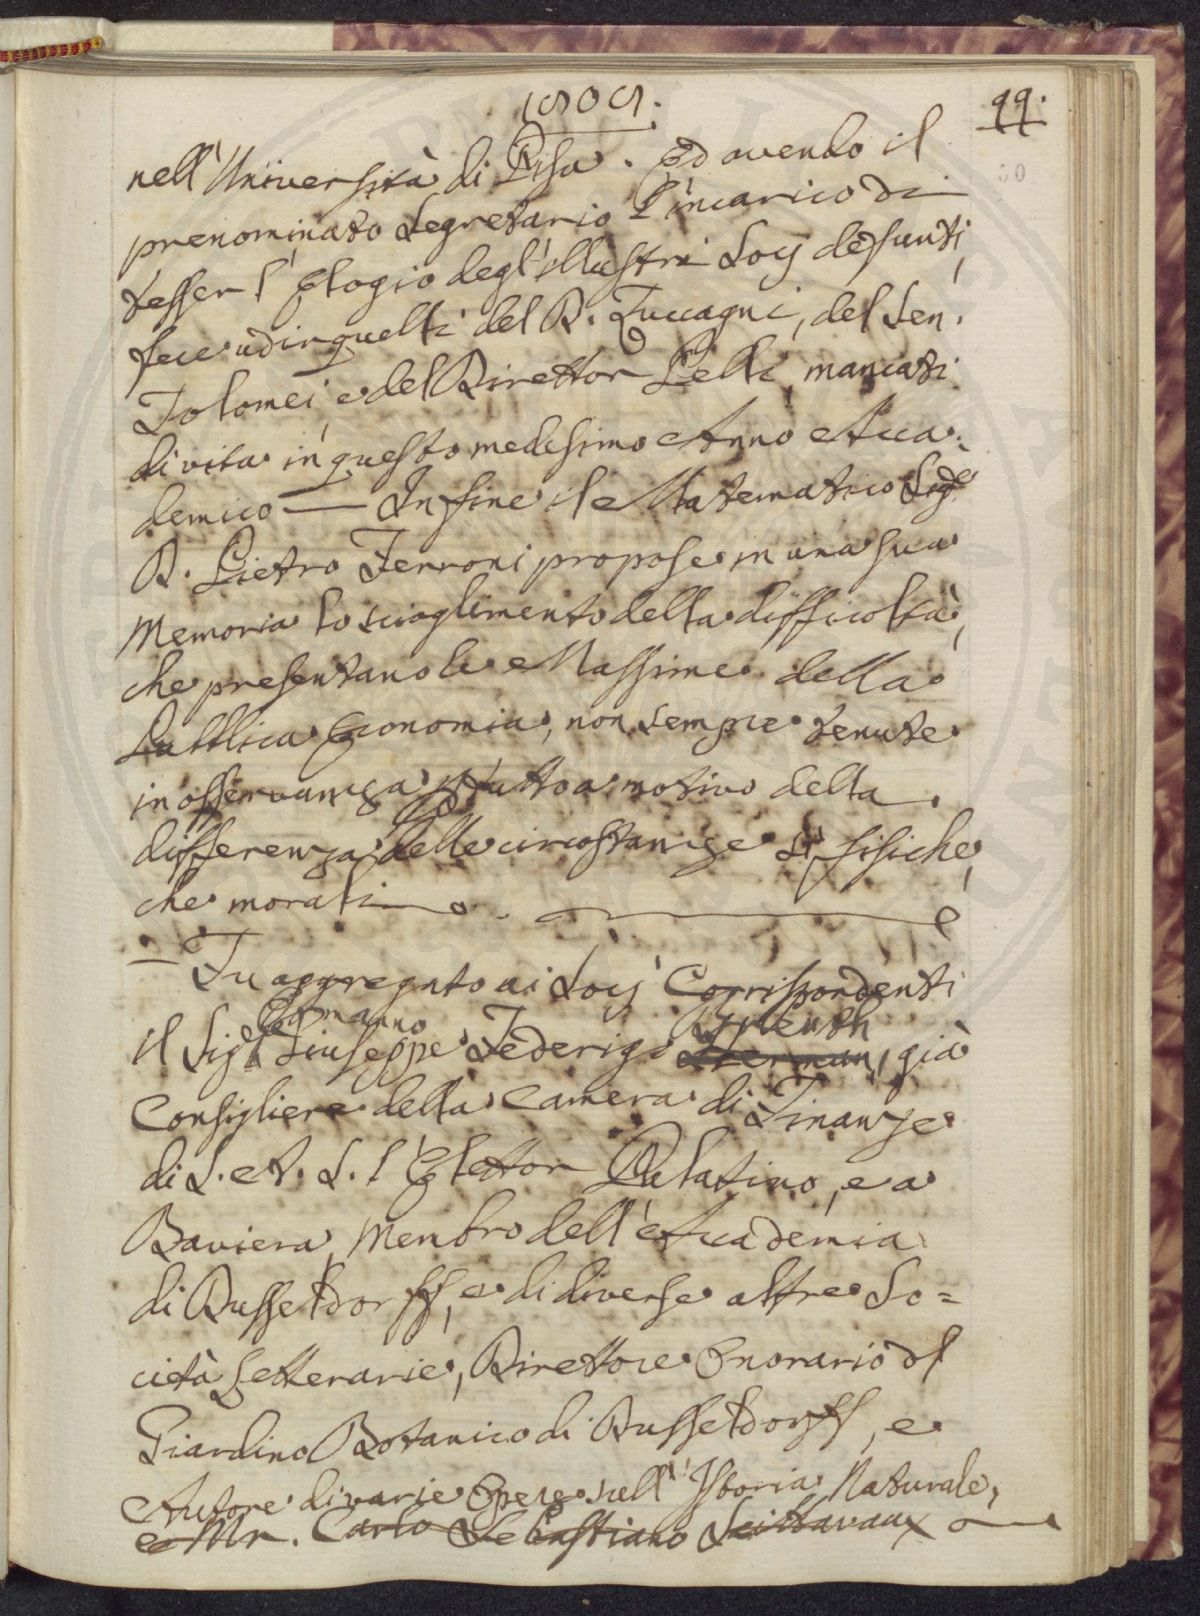 1808.
99.
nell'Università di Pisa. Ed avendo il
prenominato Segretario l'incarico di
tesser l'Elogio degl'illustri Socj defunti,
fece udir quelli del D. Zuccagni, del Sen.
Tolomei, e del Direttor Pelli, mancati
di vita in questo medesimo Anno Acca:
demico — In fine il Matematico Sigre
D. Pietro Ferroni propose in una sua
Memoria lo scioglimento della difficoltà,
che presentano le Massime della
Pubblica Economia, non sempre tenute
in osservanza tutto a motivo della
differenza delle circostanze sì fisiche,
che morali
— Fu aggregato ai Socj Corrispondenti
Ermanno
il Sigre Giuseppe Federigo già
Consigliere della Camera di Finanze
di S. A. S. l'Elettor Palatino, e a
Baviera, Membro dell'Accademia
di Dusseldorff, e di diverse altre So=
cietà Letterarie, Direttore Onorario del
Giardino Botanico di Dusseldorff, e
Autore di varie Opere sull'Istoria Naturale,
e Mr. Carlo Sebastiano